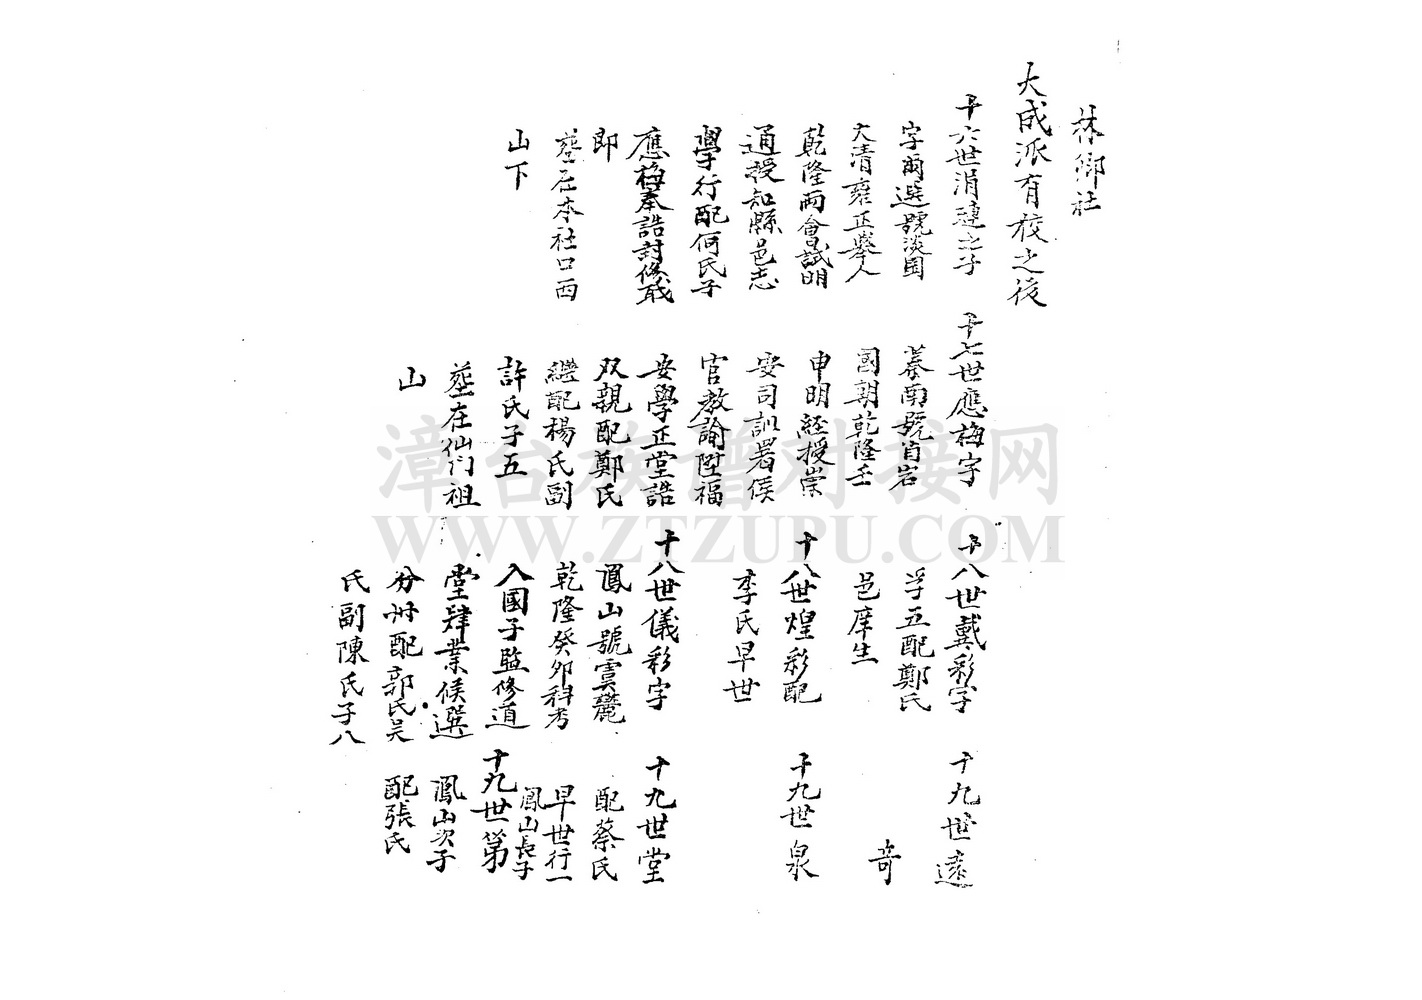 林鄉社
大成派有校之後
十六世涓璉之子
字爾選號淡園
大清雍正舉人
乾隆兩會試明
通授知縣邑志
學行配何氏子
應梅奉誥封修職
即
塟在本社口西
山下
十七世應梅字
慕南號肖岩
國朝乾隆壬
申明經授崇
安司訓署候
官教諭陞福
安學正堂誥
双親配鄭氏
繼配楊氏副
許氏子五
塟在仙門祖
山
十八世戴彩字
孚五配鄭氏
邑庠生
十八世煌彩配
李氏早世
十八世儀彩字
鳳山號雲麓
乾隆癸卯科考
入國子監修道
堂肄業候選
分州配郭氏吴
氏副陳氏子八
十九世遠
奇
十九世泉
十九世堂
配蔡氏
早世行一
鳳山長子
十九世第
鳳山次子
配張氏
漳台族谱对接网
WWW.ZTZUPU.COM